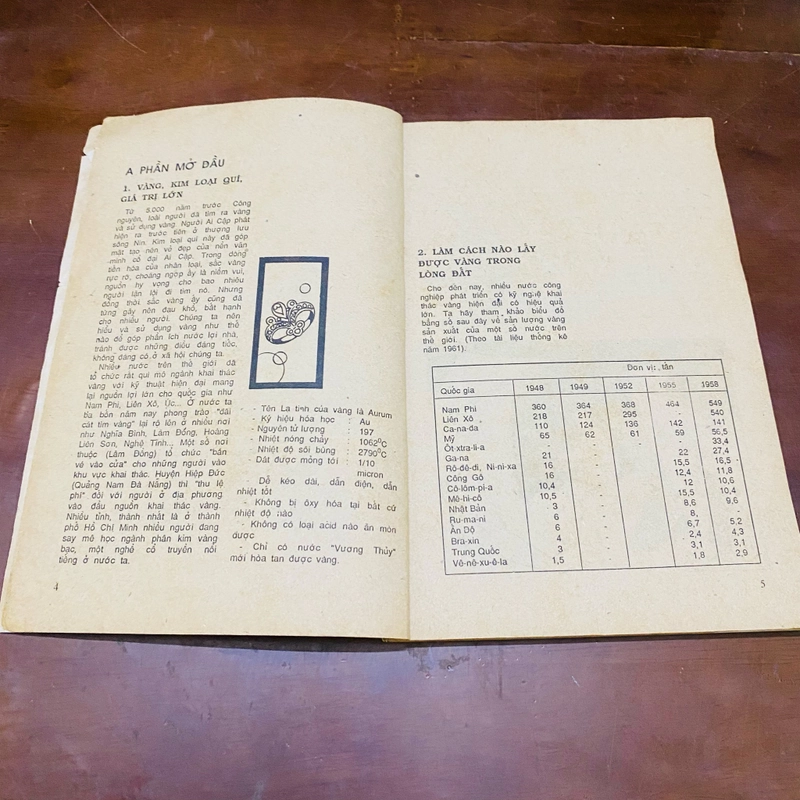 A PHẦN MỞ ĐẦU
1. VÀNG, KIM LOẠI QUÍ,
GIÁ TRỊ LỚN
Từ 5.000 năm trước Công
nguyên, loài người đã tìm ra vàng
và sử dụng vàng. Người Ai Cập phát
hiện ra trước tiên ở thượng lưu
sông Nin. Kim loại quí này đã góp
mặt tạo nên vẻ đẹp của nền văn
minh cổ đại Ai Cập. Trong dòng
tiến hóa của nhân loại, sắc vàng
rực rỡ, choáng ngợp ấy là niềm vui,
nguồn hy vọng cho bao nhiêu
người lặn lội đi tìm nó. Nhưng
đồng thời sắc vàng ấy cũng đã
từng gây nên đau khổ, bất hạnh
cho nhiều người. Chúng ta nên
hiểu và sử dụng vàng như thế
nào để góp phần ích nước lợi nhà,
tránh được những điều đáng tiếc,
không đáng có ở xã hội chúng ta.
Nhiều nước trên thế giới đã
tổ chức rất qui mô ngành khai thác
vàng với kỹ thuật hiện đại mang
lại nguồn lợi lớn cho quốc gia như
Nam Phi, Liên Xô, Úc... Ở nước ta
từ bốn năm nay phong trào "đãi
cát tìm vàng" lại rộ lên ở nhiều nơi
như Nghĩa Bình, Lâm Đồng, Hoàng
Liên Sơn, Nghệ Tĩnh... Một số nơi
thuộc (Lâm Đồng) tổ chức "bán
vé vào cửa" cho những người vào
khu vực khai thác. Huyện Hiệp Đức
(Quảng Nam Đà Nẵng) thì "thu lệ
phí" đối với người ở địa phương
vào đầu nguồn khai thác vàng.
Nhiều tỉnh, thành nhất là ở thành
phố Hồ Chí Minh nhiều người đang
say mê học ngành phân kim vàng
bạc, một nghề cổ truyền nổi
tiếng ở nước ta.
- Tên La tinh của vàng là Aurum
- Ký hiệu hóa học : Au
- Nguyên tử lượng : 197
- Nhiệt nóng chảy : 1062⁰C
- Nhiệt độ sôi bùng : 2790⁰C
- Dát được mỏng tới : 1/10
micron
Dễ kéo dài, dẫn điện, dẫn
nhiệt tốt
- Không bị ôxy hóa tại bất cứ
nhiệt độ nào
- Không có loại acid nào ăn mòn
được
- Chỉ có nước "Vương Thủy"
mới hòa tan được vàng.
4
2. LÀM CÁCH NÀO LẤY
ĐƯỢC VÀNG TRONG
LÒNG ĐẤT
Cho đến nay, nhiều nước công
nghiệp phát triển có kỹ nghệ khai
thác vàng hiện đại có hiệu quả
lớn. Ta hãy tham khảo biểu đồ
bằng số sau đây về sản lượng vàng
sản xuất của một số nước trên
thế giới. (Theo tài liệu thống kê
năm 1961).
Đơn vị: tấn
Quốc gia 1948 1949 1952 1955 1958
Nam Phi 360 364 368 464 549
Liên Xô 218 217 295 - 540
Ca-na-đa 110 124 136 142 141
Mỹ 65 62 61 59 56,5
Ốt-xtra-li-a - - - - 33,4
Ga-na 21 - - 22 27,4
Rô-đê-di, Ni-ni-xa 16 - - 15,5 16,5
Công Gô 16 - - 12,4 11,8
Cô-lôm-pi-a 10,4 - - 12 10,6
Mê-hi-cô 10,5 - - 15,5 10,4
Nhật Bản 3 - - 8,6 9,6
Ru-ma-ni 6 - - 8, -
Ấn Độ 6 - - 6,7 5,2
Bra-xin 4 - - 2,4 4,3
Trung Quốc 3 - - 3,1 3,1
Vê-nê-xu-ê-la 1,5 - - 1,8 2,9
5